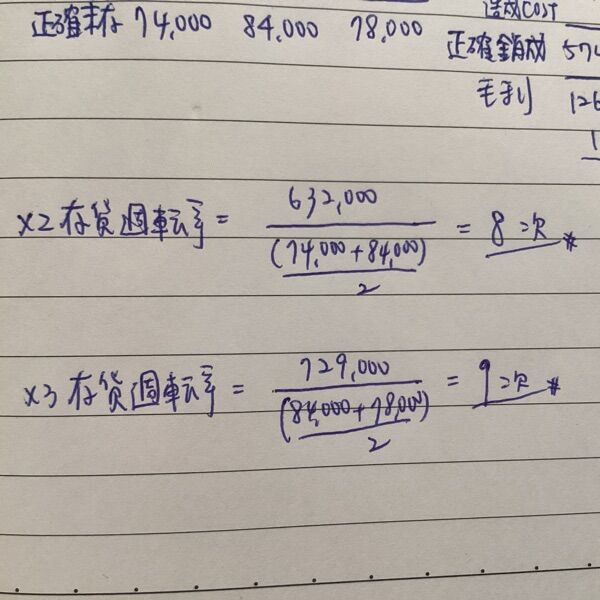 正確末存 74,000 84,000 78,000
COST
正確銷成 574
毛利 126
1
X2 存货週転率 = 632,000 / ((74,000+84,000) / 2) = 8次 *
X3 存货週転率 = 729,000 / ((84,000+78,000) / 2) = 9次 *